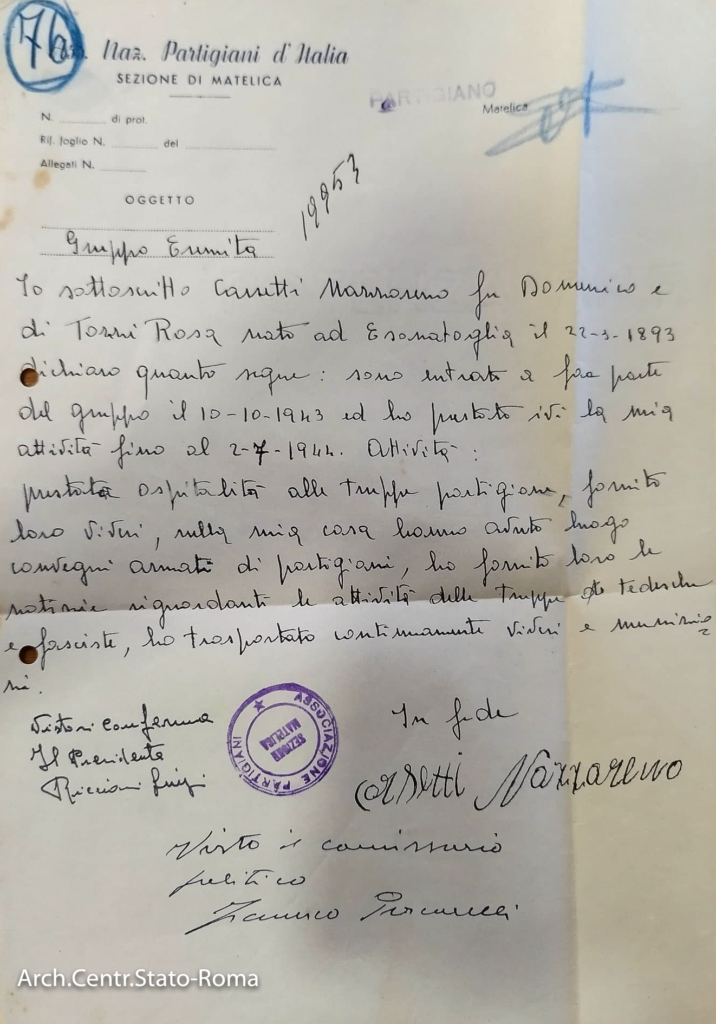 76
Ass. Naz. Partigiani d'Italia
SEZIONE DI MATELICA
PARTIGIANO
Matelica
N. di prot.
Rif. foglio N. del
Allegati N.
OGGETTO
19953
Gruppo Eremita
Io sottoscritto Corsetti Nazzareno fu Domenico e
di Tozzi Rosa nato ad Esanatoglia il 22-3-1893
dichiaro quanto segue: sono entrato a far parte
del gruppo il 10-10-1943 ed ho prestato ivi la mia
attività fino al 2-7-1944. Attività:
prestata ospitalità alle truppe partigiane, fornito
loro viveri, nella mia casa hanno avuto luogo
convegni armati di partigiani, ho fornito loro le
notizie riguardanti le attività delle truppe tedesche
e fasciste, ho trasportato continuamente viveri e munizio
ni.
Visto si conferma
Il Presidente
Riccioni Luigi
ASSOCIAZIONE PARTIGIANI
SEZIONE
MATELICA
In fede
Corsetti Nazzareno
Visto il comissario
politico
Arch.Centr.Stato-Roma